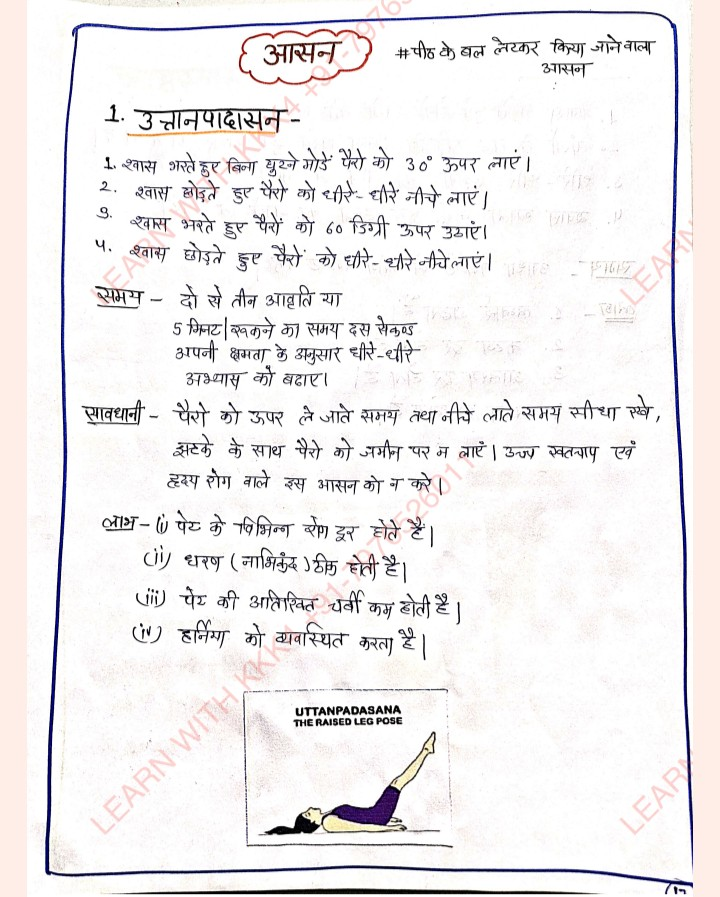 आसन
#पीठ के बल लेटकर किया जाने वाला
आसन
1. उत्तानपादासन-
1. श्वास भरते हुए बिना घुटने मोडें पैरो को 30° ऊपर लाएं।
2. श्वास छोड़ते हुए पैरो को धीरे-धीरें नीचे लाएं।
3. श्वास भरते हुए पैरों को 60 डिग्री ऊपर उठाएं।
4. श्वास छोड़ते हुए पैरों को धीरे-धीरे नीचे लाएं।
समय - दो से तीन आवृति या
5 मिनट/रूकने का समय दस सेकण्ड
अपनी क्षमता के अनुसार धीरे-धीरे
अभ्यास को बढाए।
सावधानी - पैरो को ऊपर ले जाते समय तथा नीचे लाते समय सीधा रखे,
झटके के साथ पैरो को जमीन पर न लाएं। उच्च रक्तचाप एवं
हृदय रोग वाले इस आसन को न करे।
लाभ - (i) पेट के विभिन्न रोग दूर होते है।
(ii) धरण (नाभिकंद) ठीक होती है।
(iii) पेट की अतिरिक्त चर्वी कम होती है।
(iv) हर्निया को व्यवस्थित करता है।
UTTANPADASANA
THE RAISED LEG POSE
LEARN WITH KKK4 +91-7976526011